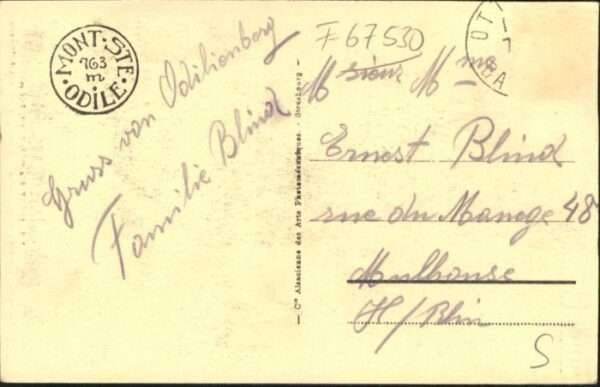 MONT·STE·
763
m
ODILE·
Gruss von Odilienberg
Familie Blind
Cie Alsacienne des Arts Photomécaniques - Strasbourg
F-67530
OTT
Msieur Mme
Ernest Blind
rue du Manege 48
Mulhouse
H/Rhin
S